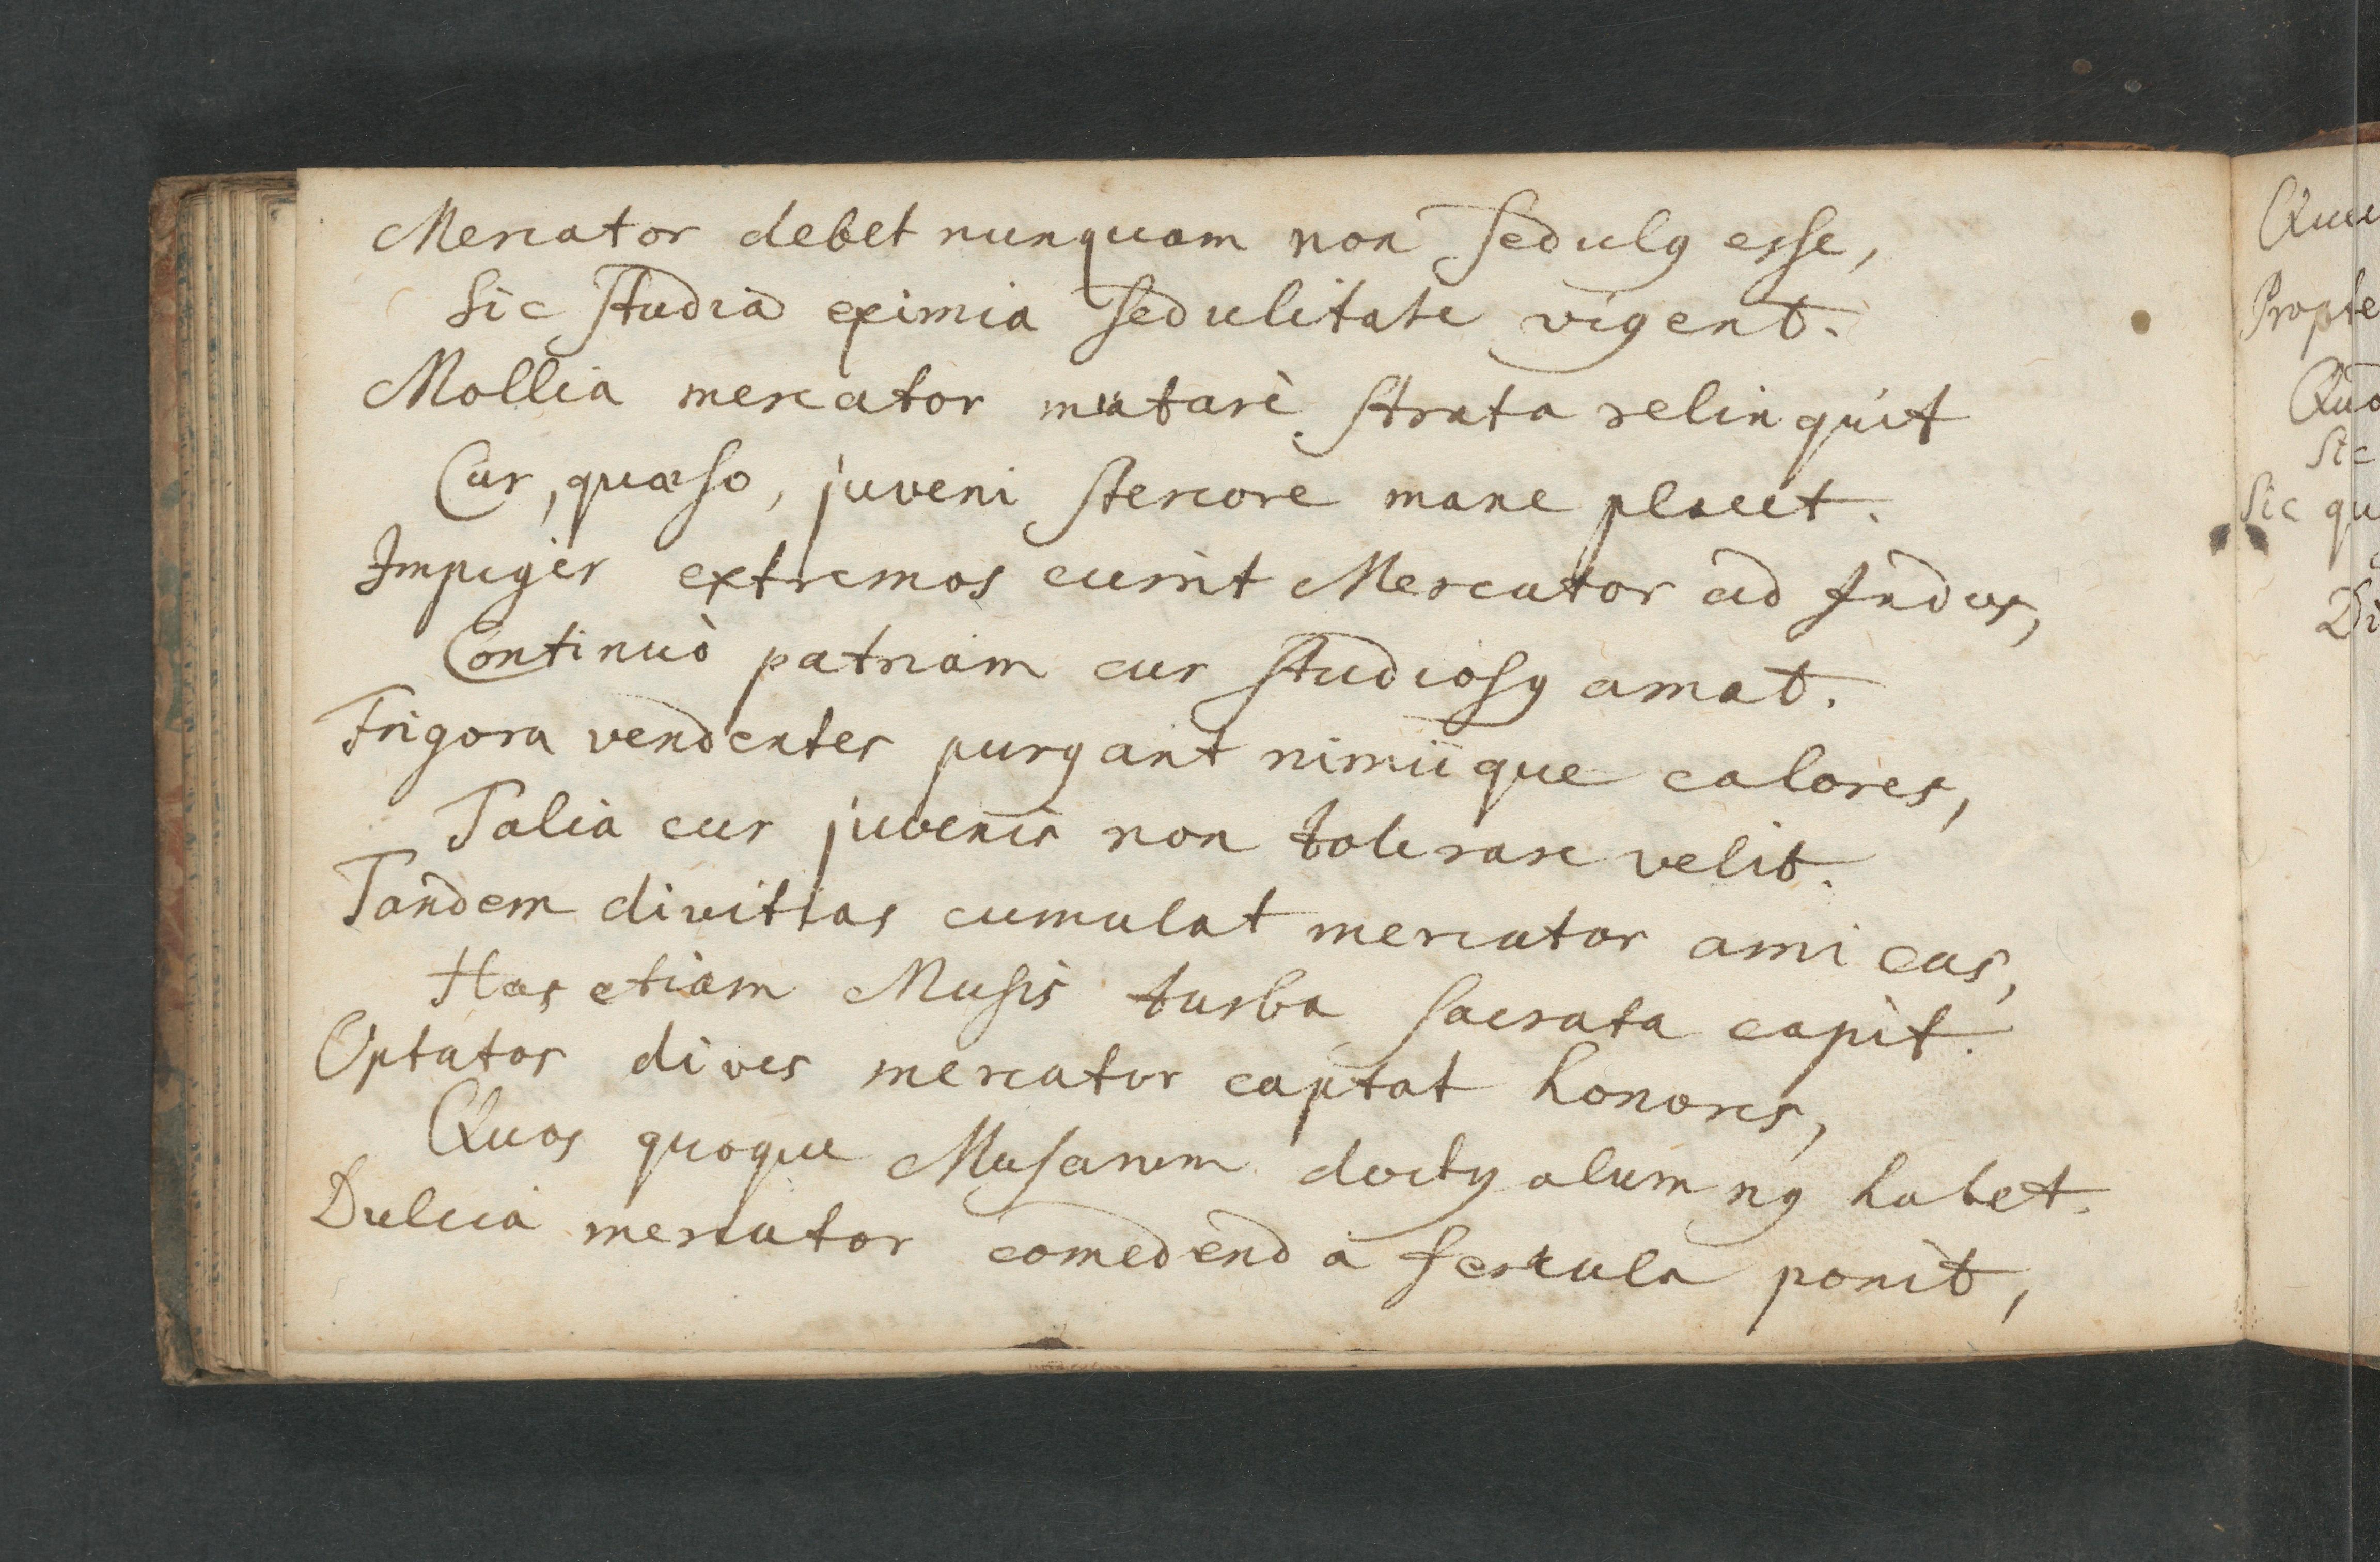 Mercator debet nunquam non sedulꝯ esse,
Sic studia eximia sedulitate vigent.
Mollia mercator maturè strata relinquit
Cur, quæso, juveni stercore mane placet.
Impiger extremos currit Mercator ad Indos,
Continuò patriam cur studiosꝯ amat.
Frigora vendentes purgant nimiique calores,
Talia cur juvenis non tolerare velit.
Tandem divitias cumulat mercator amicas,
Has etiam Musis turba sacrata capit.
Optatos dives mercator captat honores,
Quos quoque Musarum doctꝯ alumnꝯ habet.
Dulcia mercator comedenda fercula ponit,
Prople
Sic
Sic qu